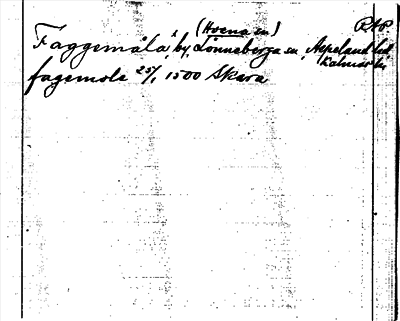 (Hvena sn) RAP
Faggemåla, by, Lönneberga sn, Aspeland hd
Kalmar ln
fagemole 25/1 1500 Skara